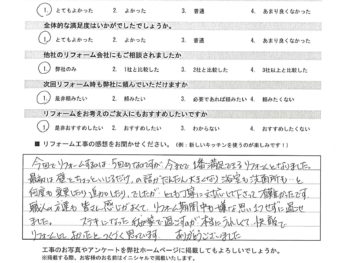 1. とてもよかった 2. よかった 3. 普通 4. あまり良くなかった
全体的な満足度はいかがでしたでしょうか。
1. とてもよかった 2. よかった 3. 普通 4. あまり良くなかった
他社のリフォーム会社にもご相談されましたか
1. 弊社のみ 2. 1社と比較した 3. 2社と比較した 4. 3社以上と比較した
次回リフォーム時も弊社に頼んでいただけますか
1. 是非頼みたい 2. 頼みたい 3. 必要であれば頼みたい 4. 頼みたくない
リフォームをお考えのご友人にもおすすめしたいですか
1. 是非おすすめしたい 2. おすすめしたい 3. わからない 4. おすすめしたくない
■ リフォーム工事の感想をお聞かせください。(例:新しいキッチンを使うのが楽しみです!)
今回でリフォーム自体は5回目なのですが今までで1番満足できるリフォームとなりました。
最初は壁をちょっといじるだけの話がだんだん大きくなり浴室も洗面所も…と
何度も変更したり追加したり、でしたが とても丁寧に対応して下さって感謝です。
職人の方達も皆さん感じがよくて、リフォーム期間中も嫌な思いせずに過せ
ました。 ステキになった和室で過ごすのが本当にうれしくて、快適で
リフォームしてよかったとつくづく思ってます ありがとうございました
工事のお写真やアンケートを弊社ホームページに掲載してもよろしいでしょうか。
※掲載する際、お客様のお名前はイニシャルで掲載いたします。